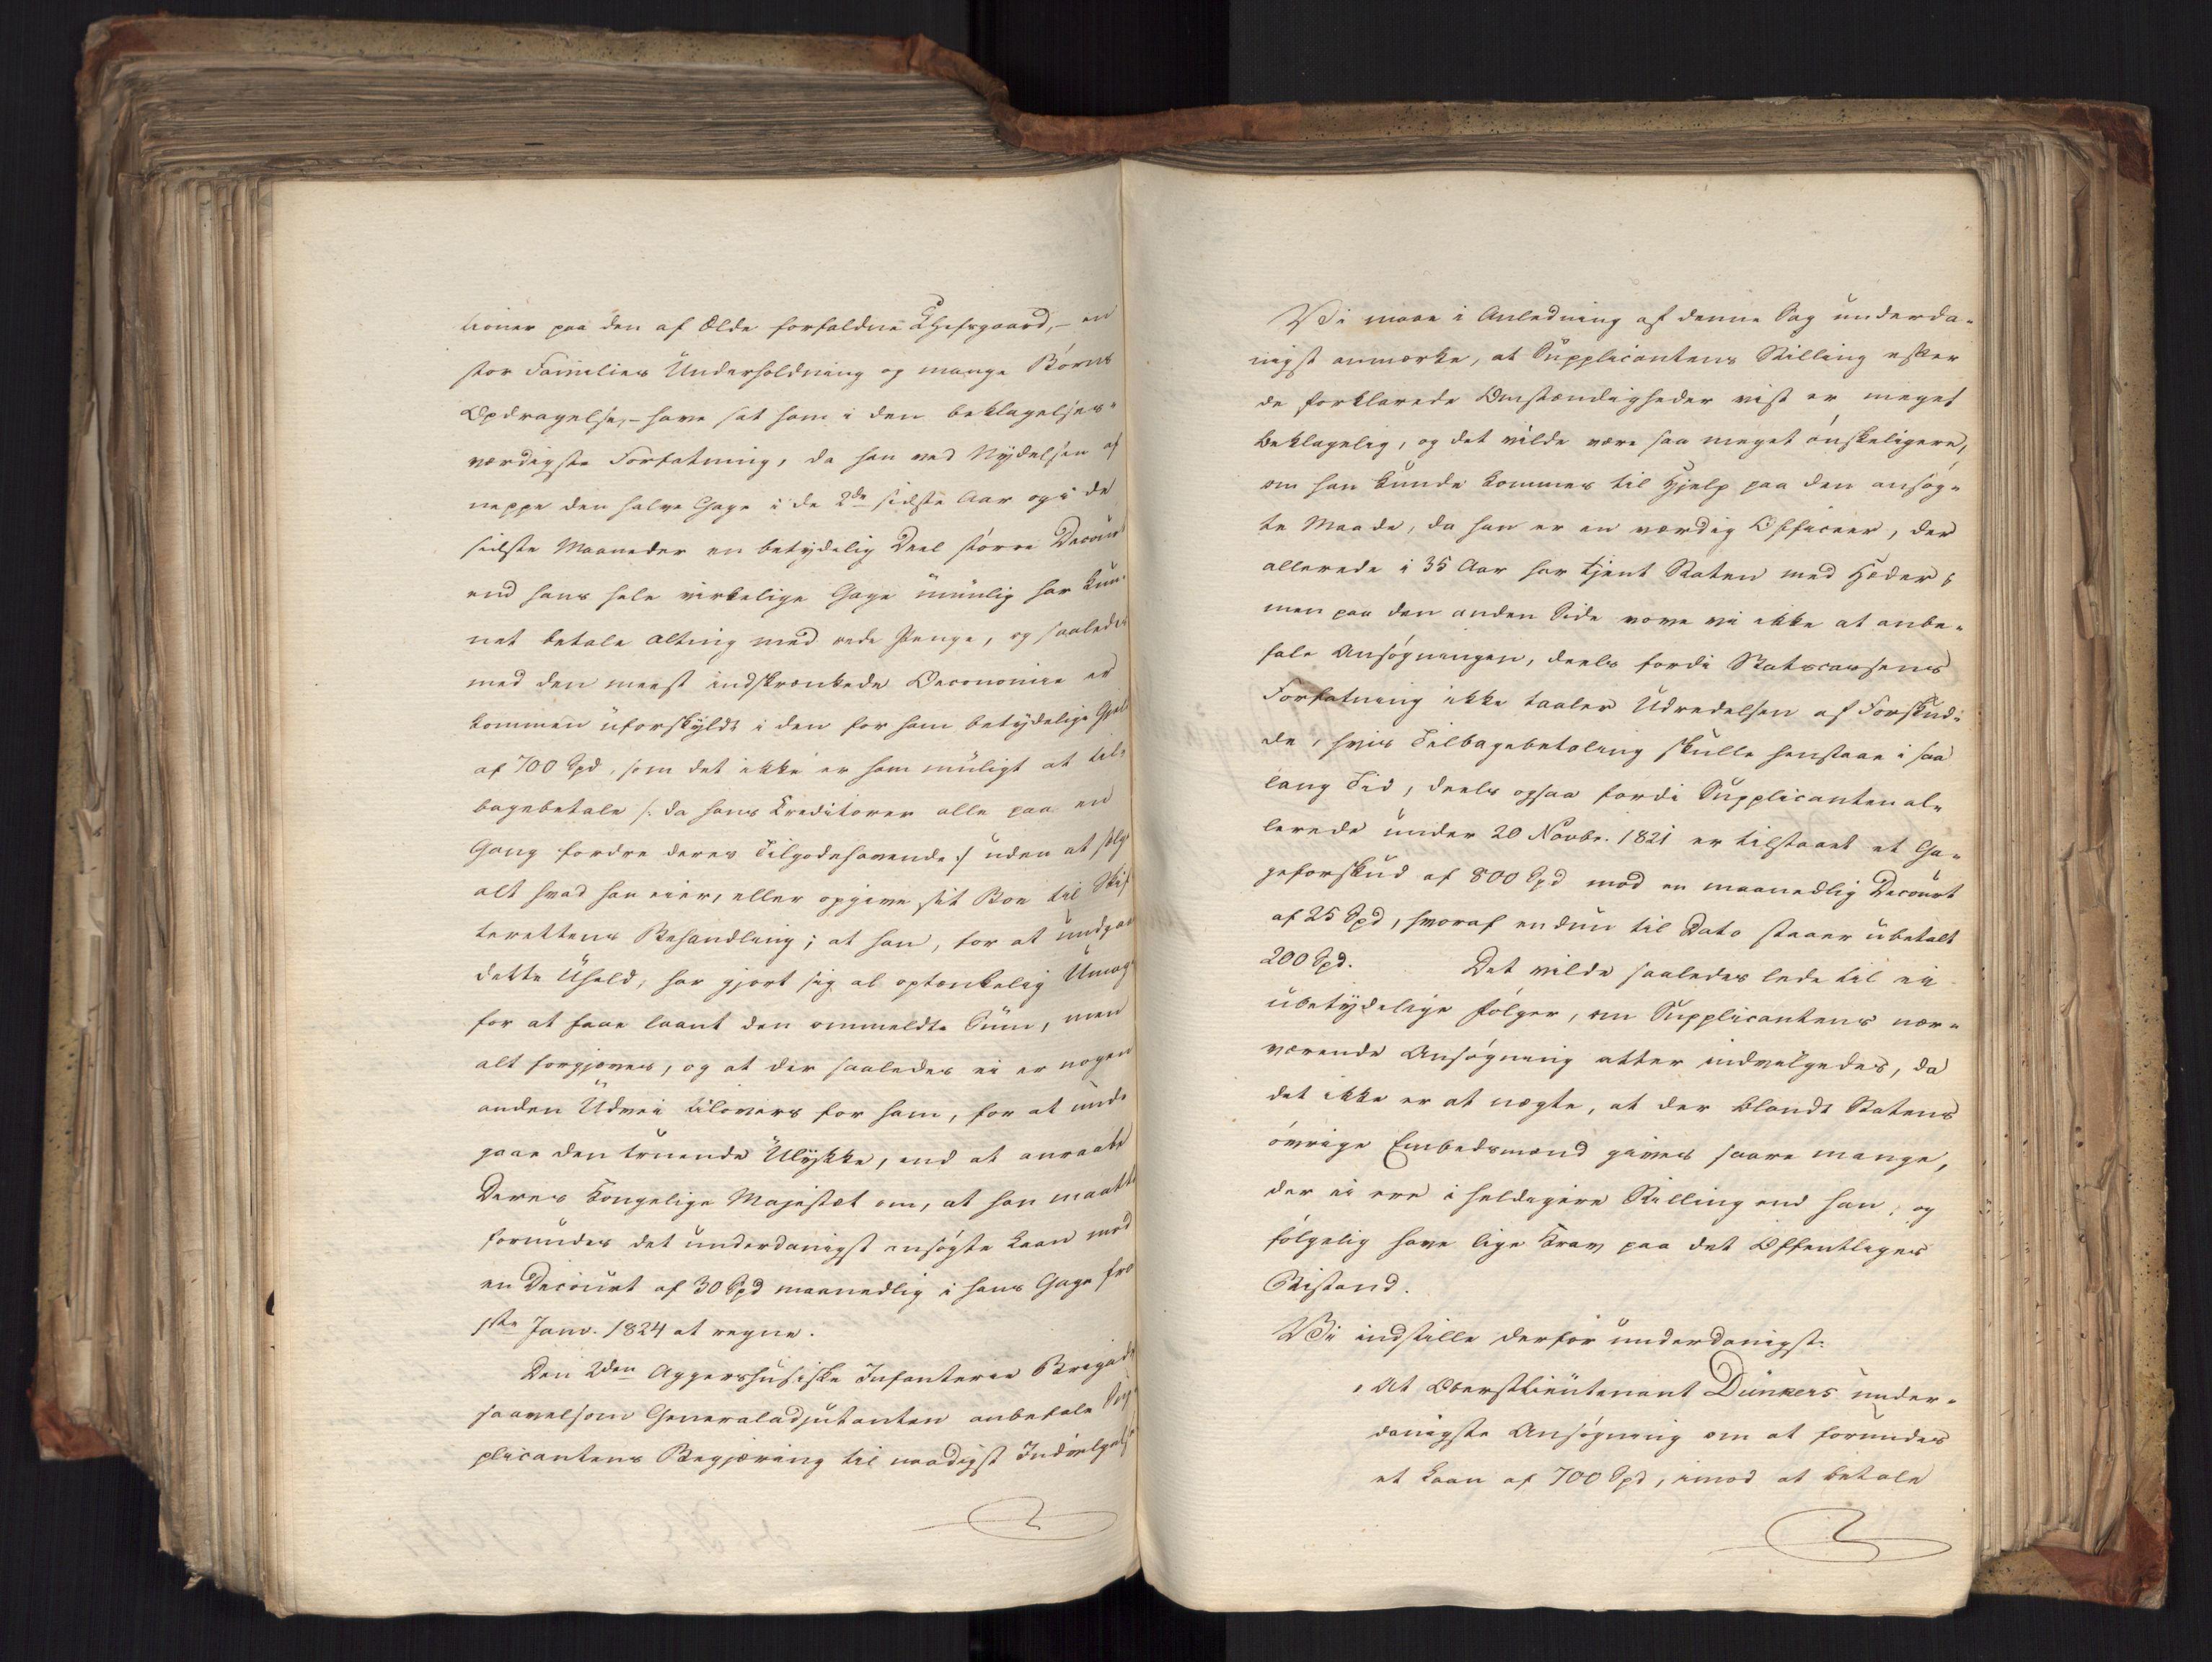 tioner paa den af Ælde forfaldne Chefsgaard, – en
stor Families Underholdning og mange Børns
Opdragelse, – have sat ham i den beklagelses-
værdigste Forfatning, da han ved Nydelsen af
neppe den halve Gage i de 2de sidste Aar og i de
sidste Maaneder en betydelig Deel større Decourt
end hans hele virkelige Gage umulig har kun-
net betale alting med rede Penge, og saaledes
med den meest indskrænkede Oeconomie er
kommen uforskyldt i den for ham betydelige Gjeld
af 700 Spd, som det ikke er ham muligt at til-
bagebetale /: da hans Creditorer alle paa en
Gang fordre deres Tilgodehavende :/ uden at sælge
alt hvad han eier, eller opgive sit Boe til Skif
terettens Behandling; at han, for at undgaae
dette Uheld, har gjort sig al optænkelig Umage
for at faae laant den ommeldte Sum, men
alt forgjæves, og at der saaledes ei er nogen
anden Udvei tilovers for ham, for at und-
gaae den truende Ulykke, end at anraabe
Deres Kongelige Majestæt om, at han maatte
forundes det underdanigst ansøgte Laan mod
en Decourt af 30 Spd maanedlig i hans Gage fra
1ste Janv. 1824 at regne.
Den 2den Aggershusiske Infanterie Brigade
saavelsom Generaladjutanten anbefale Sup-
plicantens Begjæring til naadigst Indvilgelse
Vi maae i Anledning af denne Sag underda-
nigst anmærke, at Supplicantens Stilling efter
de forklarede Omstændigheder vist er meget
beklagelig, og det vilde være saa meget ønskeligere,
om han kunde kommes til Hjelp paa den ansøg-
te Maade, da han er en værdig Officeer, der
allerede i 35 Aar har tjent Staten med Hæder;
men paa den anden Side vove vi ikke at anbe-
fale Ansøgningen, deels fordi Statscassens
Forfatning ikke taaler Udredelsen af Forskud-
de, hvis Tilbagebetaling skulle henstaae i saa
lang Tid, deels ogsaa fordi Supplicanten al-
lerede under 20 Novbr. 1821 er tilstaaet et Ga-
geforskud af 800 Spd mod en maanedlig Decourt
af 25 Spd, hvoraf endnu til Dato staaer ubetalt
200 Spd. Det vilde saaledes lede til ei
ubetydelige Følger, om Supplicantens nær-
værende Ansøgning atter indvilgedes, da
det ikke er at nægte, at der blandt Statens
øvrige Embedsmænd gives saare mange,
der ei ere i heldigere Stilling end han, og
følgelig have lige Krav paa det Offentliges
Bistand.
Vi indstille derfor underdanigst:
„At Oberstlieutenant Dunkers under-
danigste Ansøgning om at forundes
et Laan af 700 Spd, imod at betale